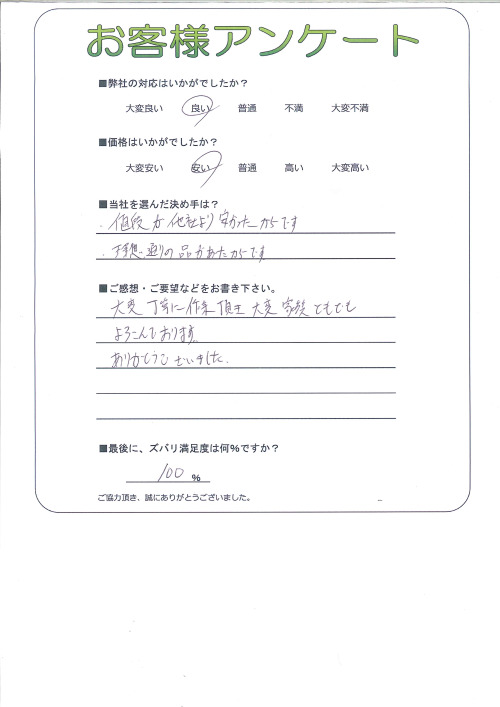 お客様アンケート
■弊社の対応はいかがでしたか？
大変良い 良い 普通 不満 大変不満
■価格はいかがでしたか？
大変安い 安い 普通 高い 大変高い
■当社を選んだ決め手は？
・値段が他社より安かったからです
・予想通りの品があたからです
■ご感想・ご要望などをお書き下さい。
大変丁寧に作業頂き大変家族ともでも
よろこんでおります。
ありがとうございました。
■最後に、ズバリ満足度は何%ですか？
100 %
ご協力頂き、誠にありがとうございました。